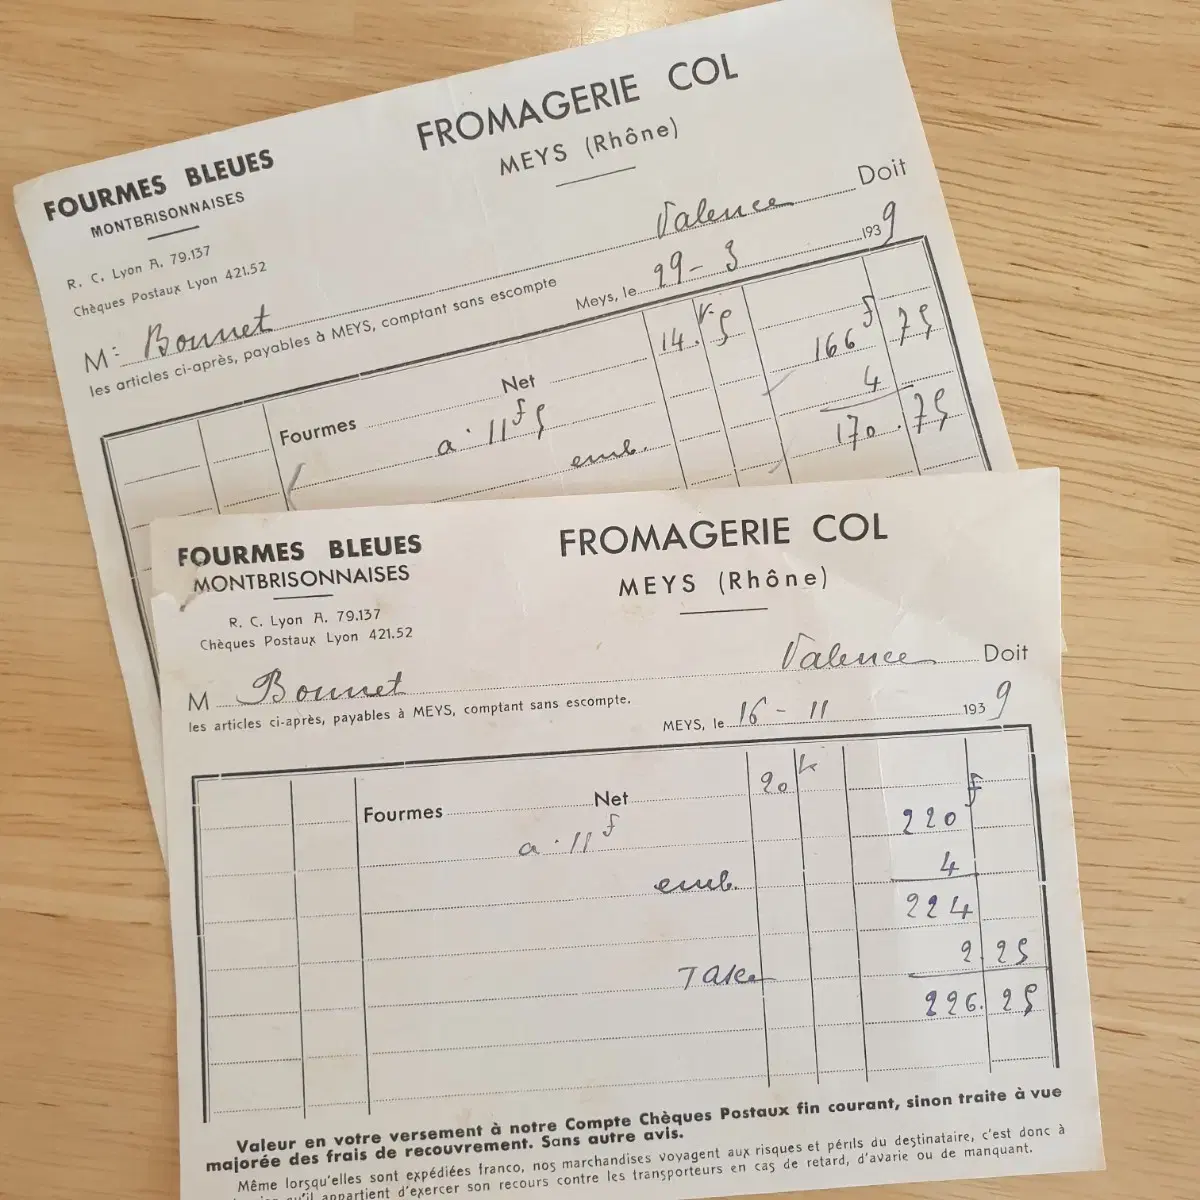 FROMAGERIE COL
MEYS (Rhône)
FOURMES BLEUES
MONTBRISONNAISES
R. C. Lyon A. 79.137
Chèques Postaux Lyon 421.52
Valence Doit
M: Bonnet
les articles ci-après, payables à MEYS, comptant sans escompte
Meys, le 29-3 1939
Fourmes Net 14.k5
166f 75
a 11f5
4
emb. 170.75
FOURMES BLEUES
MONTBRISONNAISES
R. C. Lyon A. 79.137
Chèques Postaux Lyon 421.52
FROMAGERIE COL
MEYS (Rhône)
M Bonnet Valence Doit
les articles ci-après, payables à MEYS, comptant sans escompte.
MEYS, le 16-11 1939
Fourmes Net 20 k
a 11f 220 f
emb. 4
224
Taxe 2 25
226.25
Valeur en votre versement à notre Compte Chèques Postaux fin courant, sinon traite à vue
majorée des frais de recouvrement. Sans autre avis.
Même lorsqu'elles sont expédiées franco, nos marchandises voyagent aux risques et périls du destinataire, c'est donc à
qu'il appartient d'exercer son recours contre les transporteurs en cas de retard, d'avarie ou de manquant.